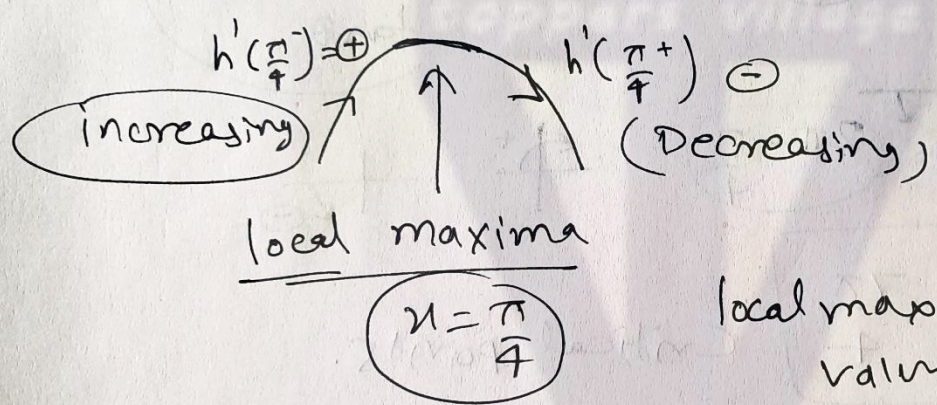 h'(π/4⁻) = ⊕
h'(π/4⁺) ⊖
increasing
(Decreasing)
local maxima
x = π/4
local max
valu